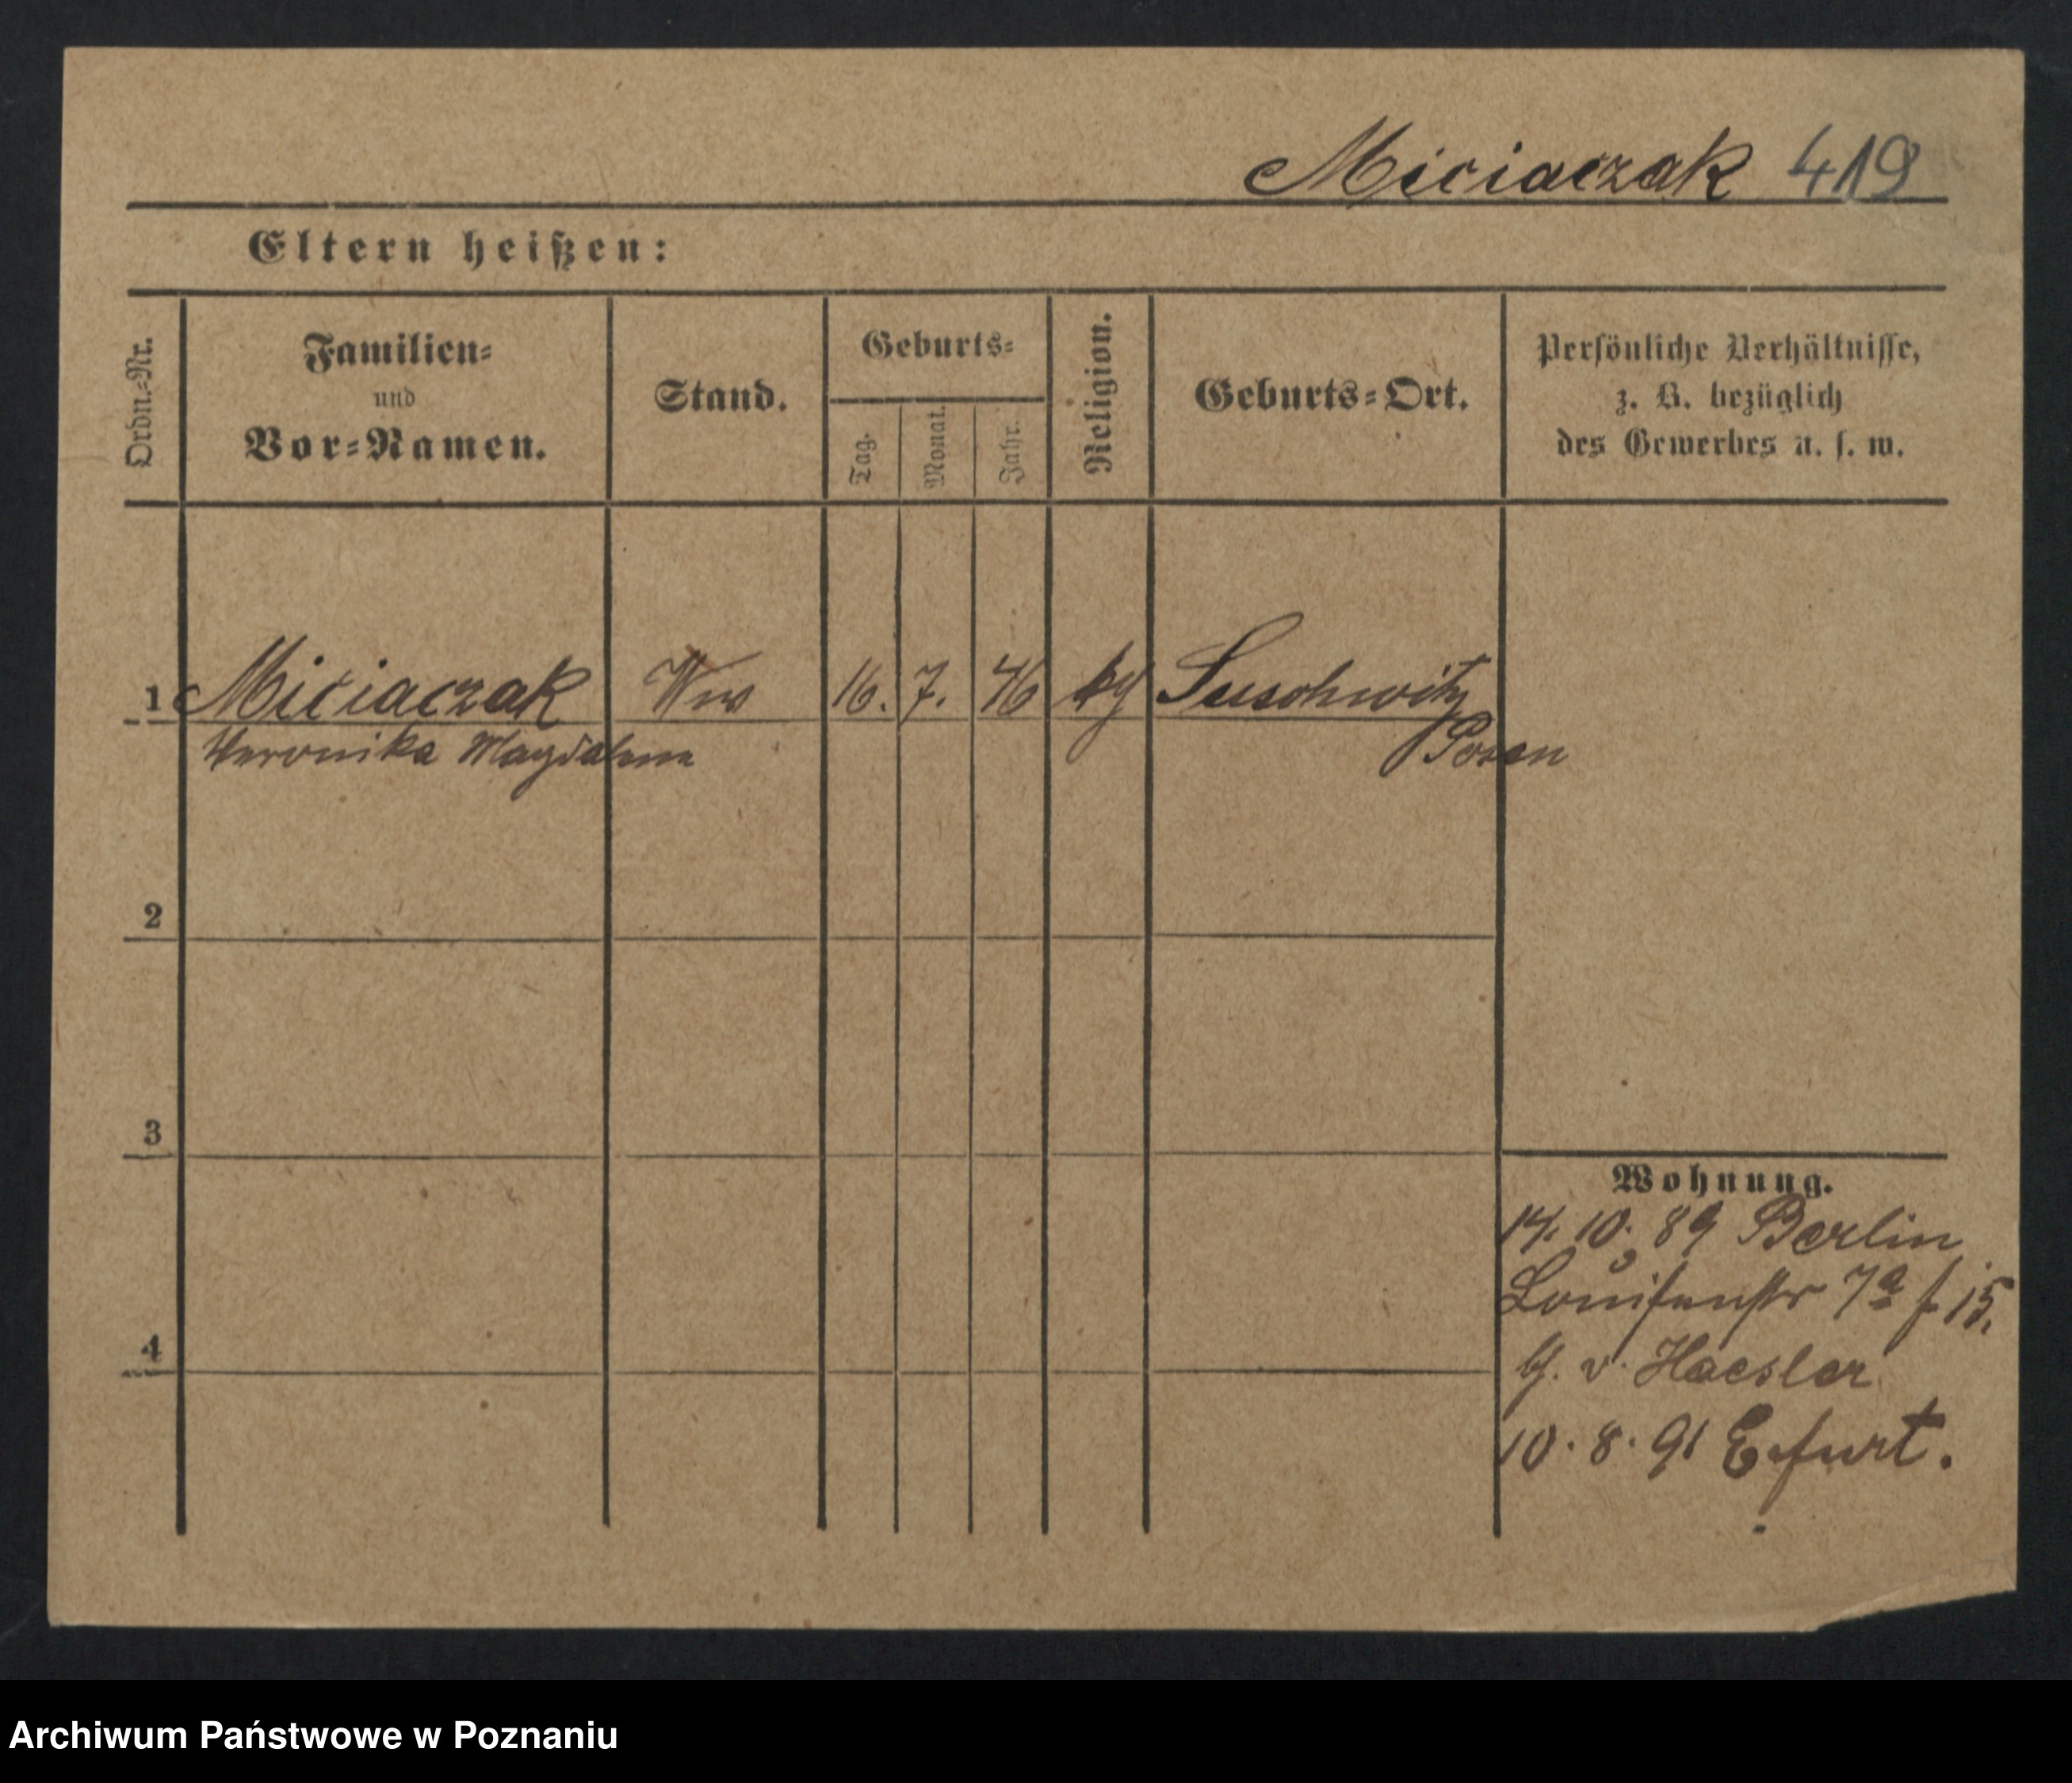 Miciaczak 419
Eltern heißen:
Ordn.=Nr.
Familien=
und
Vor=Namen.
Stand.
Geburts=
Tag.
Monat.
Jahr.
Religion.
Geburts=Ort.
Persönliche Verhältnisse,
z. B. bezüglich
des Gewerbes u. s. w.
1 Miciaczak Ww 16. 7. 46 Suschwitz
Veronika Magdalena Posen
2
3
4
Wohnung.
14. 10. 89 Berlin
Louisenstr 7a 15.
v. Haesler
10. 8. 91 Erfurt.
Archiwum Państwowe w Poznaniu